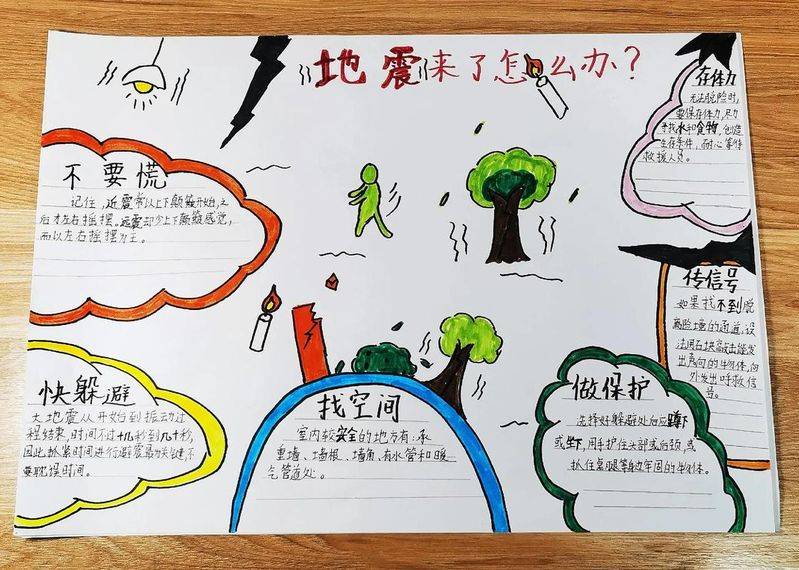 地震来了怎么办?
不要慌
记住,近震常以上下颠簸开始,之
后才左右摇摆。远震却少上下颠簸感觉,
而以左右摇摆为主。
快躲避
大地震从开始到振动过
程结束,时间不过十几秒到几十秒,
因此抓紧时间进行避震最为关键,不
要耽误时间。
找空间
室内较安全的地方有:承
重墙、墙根、墙角、有水管和暖
气管道处。
做保护
选择好躲避处后应蹲下
或坐下,用手护住头部或后颈,或
抓住桌腿等身边牢固的物体。
存体力
无法脱险时,
要保存体力,尽力
寻找水和食物,创造
生存条件,耐心等待
救援人员。
传信号
如果找不到脱
离险境的通道,设
法用石块敲击能发
出声响的物体,向
外发出呼救信
号。